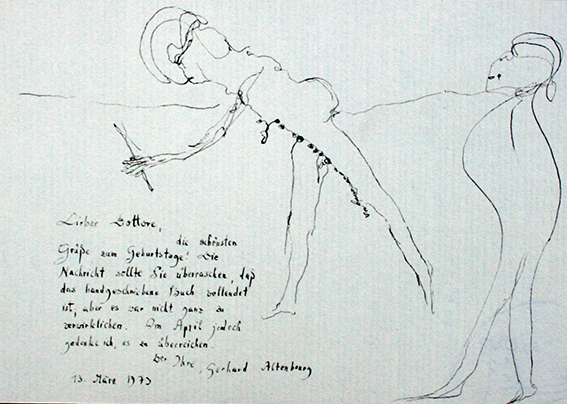 Lieber Dottore,
die schönsten
Grüße zum Geburtstage! Die
Nachricht sollte Sie überraschen, daß
das handgeschriebene Buch vollendet
ist, aber es war nicht ganz zu
verwirklichen. Im April jedoch
gedenke ich, es zu überreichen.
Der Ihre, Gerhard Altenbourg
13. März 1973